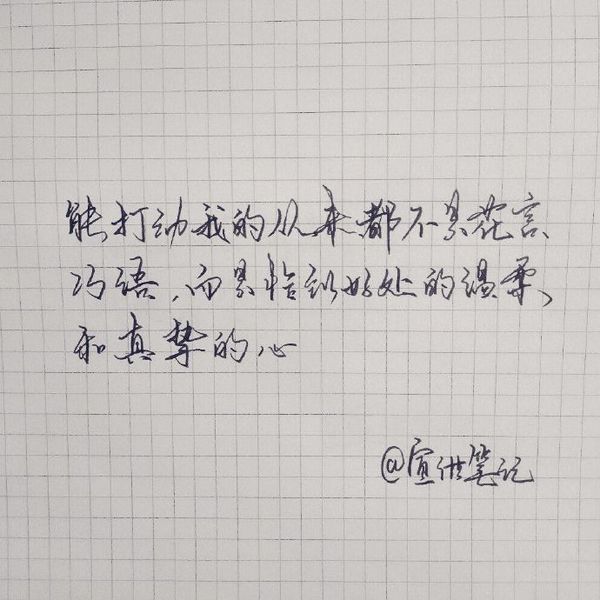 能打动我的从来都不是花言
巧语,而是恰到好处的温柔,
和真挚的心
@宣供笔记